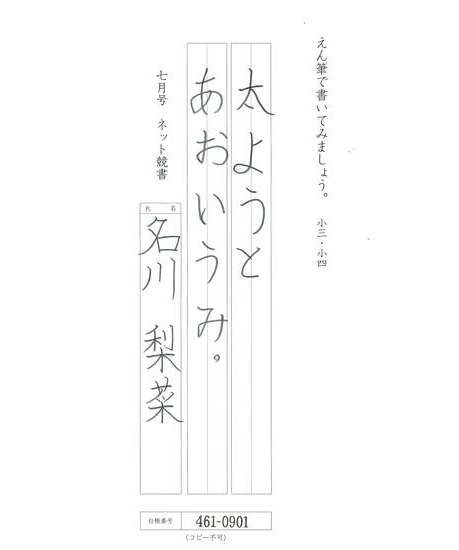 えん筆で書いてみましょう。 小三・小四
太ようと
あおいうみ。
七月号 ネット競書
氏名
名川 梨菜
台帳番号 461-0901
(コピー不可)